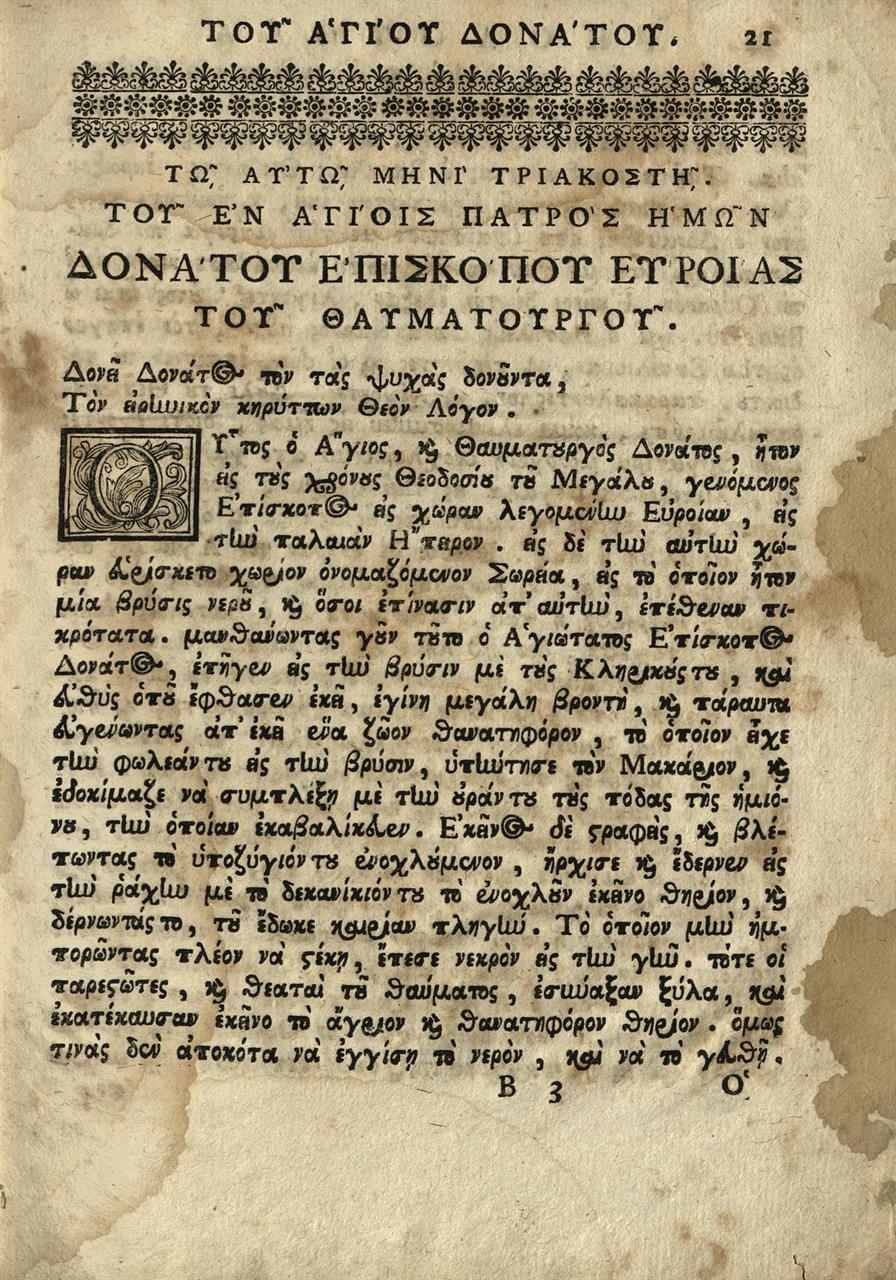 ΤΟΥ͂ ἉΓΊΟΥ ΔΟΝΆΤΟΥ. 21
Τῼ͂ ΑΥ̓Τῼ͂ ΜΗΝῚ ΤΡΙΑΚΟΣΤῌ͂.
ΤΟΥ͂ ἘΝ ἉΓΊΟΙΣ ΠΑΤΡῸΣ ἩΜΩ͂Ν
ΔΟΝΆΤΟΥ ἘΠΙΣΚΌΠΟΥ ΕΥ̓ΡΟΊΑΣ
ΤΟΥ͂ ΘΑΥΜΑΤΟΥΡΓΟΥ͂.
Δονεῖ Δονάτος τὸν τὰς ψυχὰς δονοῦντα,
Τὸν εἰρηνικὸν κηρύττων Θεὸν Λόγον.
ΟΥ̓͂τος ὁ Ἅγιος, καὶ Θαυματουργὸς Δονάτος, ἦτον
εἰς τοὺς χρόνους Θεοδοσίου τοῦ Μεγάλου, γενόμενος
Ἐπίσκοπος εἰς χώραν λεγομένην Εὐροίαν, εἰς
τὴν παλαιὰν Ἤπειρον. εἰς δὲ τὴν αὐτὴν χώ-
ραν εὑρίσκετο χωρίον ὀνομαζόμενον Σωρεία, εἰς τὸ ὁποῖον ἦτον
μία βρύσις νεροῦ, καὶ ὅσοι ἐπίνασιν ἀπ' αὐτὴν, ἐπέθεναν πι-
κρότατα. μανθανώντας γοῦν τοῦτο ὁ Ἁγιώτατος Ἐπίσκοπος
Δονάτος, ἐπῆγεν εἰς τὴν βρύσιν μὲ τοὺς Κληρικούς του, καὶ
εὐθὺς ὁποῦ ἔφθασεν ἐκεῖ, ἐγίνη μεγάλη βροντὴ, καὶ πάραυτα
εὐγενώντας ἀπ' ἐκεῖ ἕνα ζῶον θανατηφόρον, τὸ ὁποῖον εἶχε
τὴν φωλεάν του εἰς τὴν βρύσιν, ὑπήντησε τὸν Μακάριον, καὶ
ἐδοκίμαζε νὰ συμπλέξῃ μὲ τὴν οὐράν του τοὺς πόδας τῆς ἡμιό-
νου, τὴν ὁποίαν ἐκαβαλίκευεν. Ἐκεῖνος δὲ στραφεὶς, καὶ βλέ-
πωντας τὸ ὑποζύγιόν του ἐνοχλούμενον, ἤρχισε καὶ ἔδερνεν εἰς
τὴν ῥάχιν μὲ τὸ δεκανίκιόν του τὸ ἐνοχλοῦν ἐκεῖνο θηρίον, καὶ
δέρνωντάς το, τοῦ ἔδωκε καιρίαν πληγήν. Τὸ ὁποῖον μὴν ἠμ-
πορῶντας πλέον νὰ στέκῃ, ἔπεσε νεκρὸν εἰς τὴν γῆν. τότε οἱ
παρεστῶτες, καὶ θεαταὶ τοῦ θαύματος, ἐσύναξαν ξύλα, καὶ
ἐκατέκαυσαν ἐκεῖνο τὸ ἄγριον καὶ θανατηφόρον θηρίον. ὅμως
τινὰς δὲν ἀποκότα νὰ ἐγγίσῃ τὸ νερὸν, καὶ νὰ τὸ γευθῇ.
B 3 Ὁ